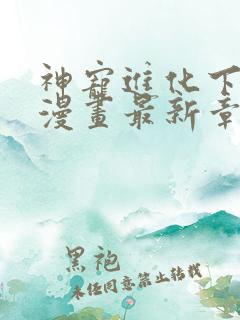 神寵進化下
漫畫最新章
黑袍
未经同意禁止转载